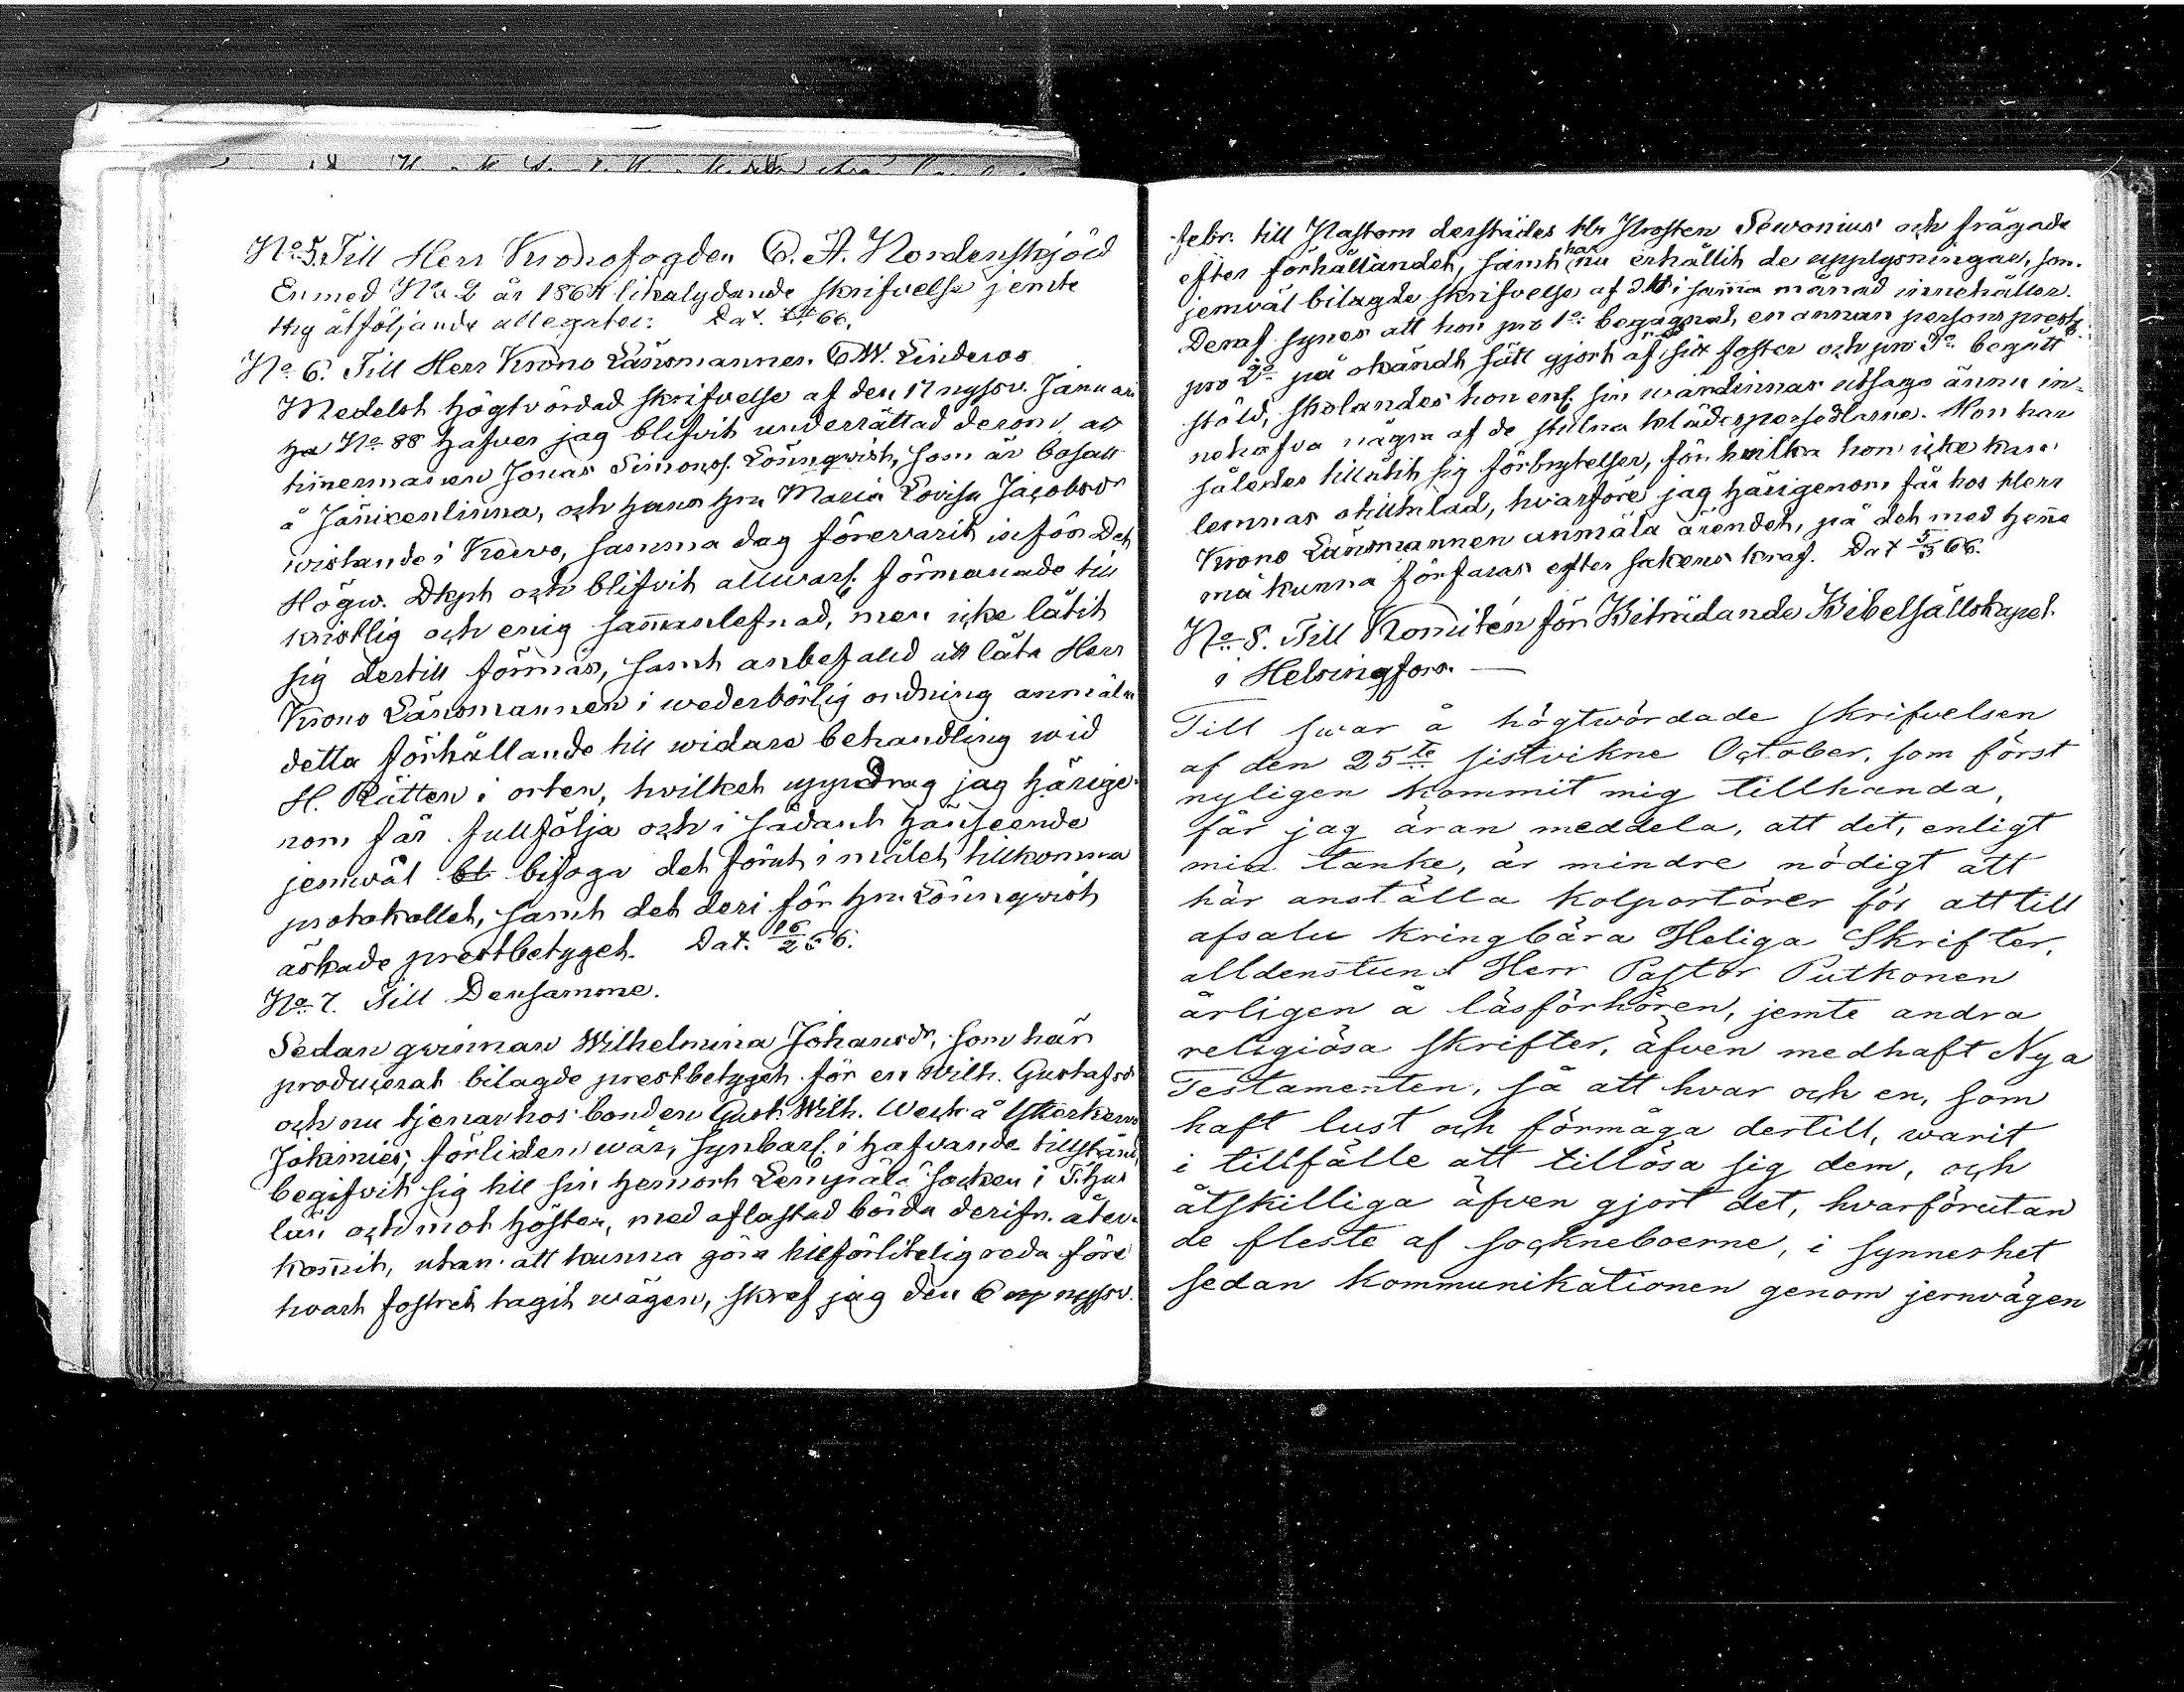 No 5. Till Herr Kronofogden C. A. Nordenskjöld
En med No 2 år 1864 likalydande skrifvelse jemte
thy åtföljande allegater. Dat. 66.
No 6. Till Herr Krono Länsmannen C W. Linderos
Medelst högtvördad skrifvelse af den 17 nyssv. Januari
No 88 hafver jag blifvit underrättad derom, att
timermannen Jonas Simonss. Lönnqwist, som är bosatt
å Jänixenlinna, och hans hru Maria Lovisa Jacobsdr
wistande i Kervo, samma dag förevarit inför Det
Högw. Dkpt och blifvit allwarl. förmanade till
kristlig och enig sam̄anlefnad, men icke låtit
sig dertill förmås, samt anbefalld att låta Herr
Krono Länsmannen i wederbörlig ordning anmäla
detta förhållande till widare behandling wid
H. Rätten i orten, hvilket uppdrag jag härige-
nom får fullfölja och i sådant hänseende
jemwäl bifoga det förut i målet tillkomna
protokollet, samt det deri för hru Lönnqwist
äskade prestbetyget. Dat. 16/2 66.
No 7. Till Densamme.
Sedan qwinnan Wilhelmina Johansdr, som här
producerat bilagde prestbetyget för en Wilh. Gustafsdr
och nu tjenar hos bonden Gust. Wilh. Weck å Ytterkervo
Jokimies, förliden wår, synbarl. i hafvande tillstånd,
begifvit sig till sin hemort Lempälä socken i T:hus
län och mot hösten, med aflastad börda derifr. åter-
kom̄it, utan att kunna göra tillförlitelig reda före
hvart fostret tagit wägen, skref jag den 6 nyssv.
febr. till Pastorn derstädes Hr Prosten Sewonius och frågade
efter förhållandet, samt har nu erhållit de upplysningar, som
jemväl bilagde skrifvelse af d. i sam̄a månad innehåller.
Deraf synes att hon pro 1o begagnat en annan persons prestb.
pro 2o på okändt sätt gjort af med sitt foster och pro 3o begått
stöld, skolandes hon enl. sin wärdinnas utsago ännu in-
nehafva några af de stulna klädespersedlarne. Hon har
således tillåtit sig förbrytelser, för hvilka hon icke kan
lemnas otilltalad, hvarföre jag härigenom får hos Herr
Krono Länsmannen anmäla ärendet, på det med hen̄e
må kunna förfaras efter sakens kraf. Dat 3/3 66.
No 8. Till Komitén för Biträdande Bibelsällskapet
i Helsingfors. —
Till swar å högtwördade skrifvelsen
af den 25te sistvikne October, som först
nyligen kommit mig tillhanda,
får jag äran meddela, att det, enligt
min tanke, är mindre nödigt att
här anställa kolportörer för att till
afsalu kringbära Heliga Skrifter,
alldenstund Herr Pastor Putkonen
årligen å läsförhören, jemte andra
religiösa skrifter, äfven medhaft Nya
Testamenten, så att hvar och en, som
haft lust och förmåga dertill, warit
i tillfälle att tillösa sig dem, och
åtskilliga äfven gjort det, hvarförutan
de fleste af sockneboerne, i synnerhet
sedan kommunikationen genom jernvägen